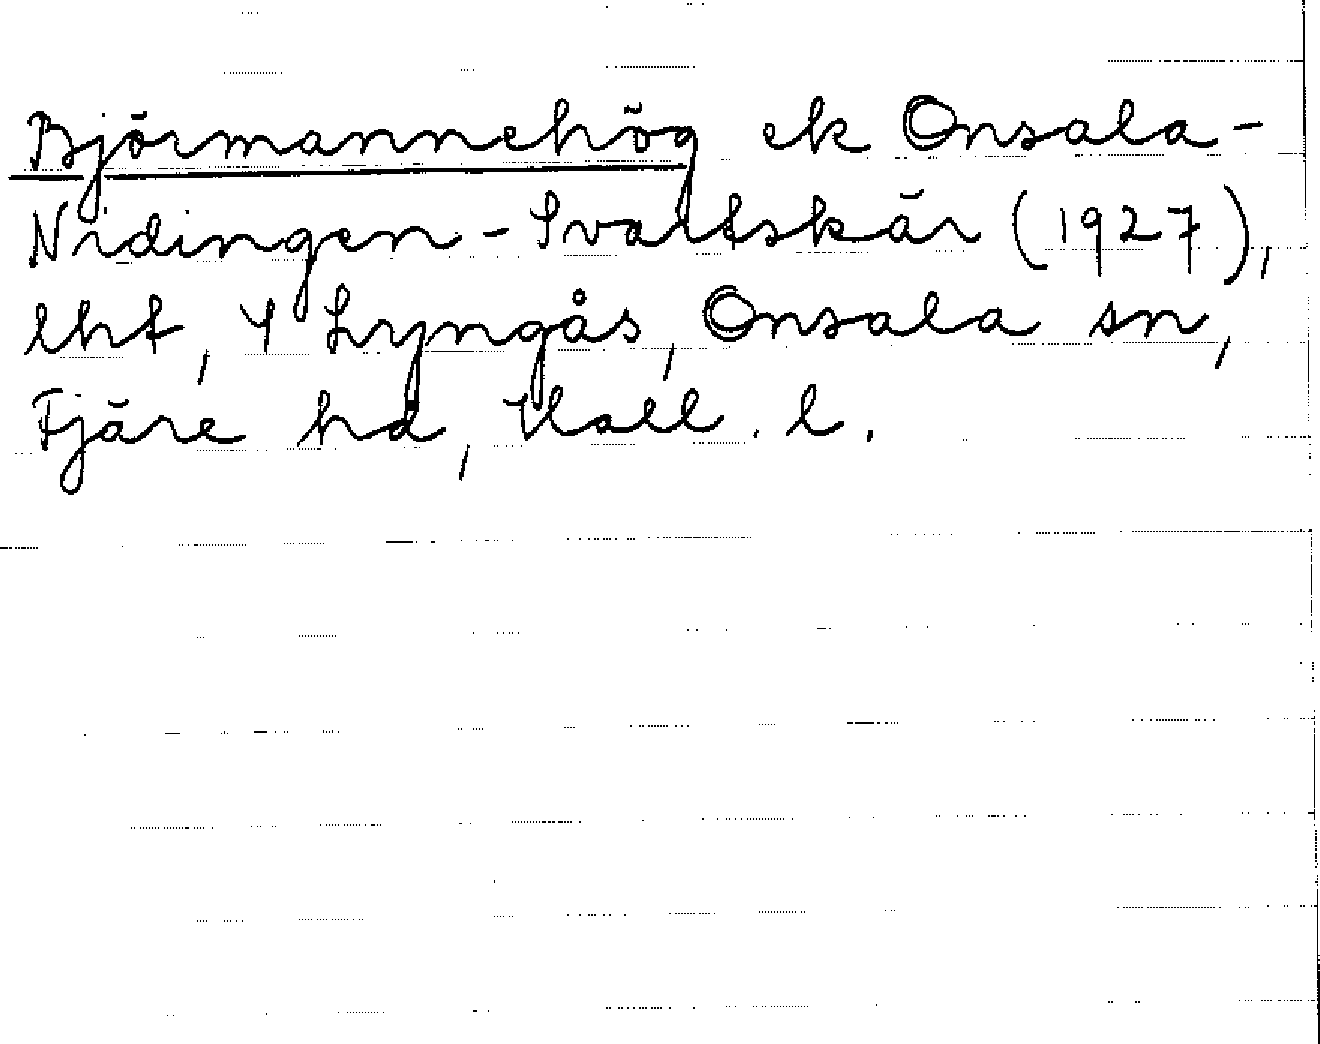 Björmannehög ek Onsala-
Nidingen-Svartskär (1927),
lht, 4 Lyngås, Onsala sn,
Fjäre hd, Hall. l.